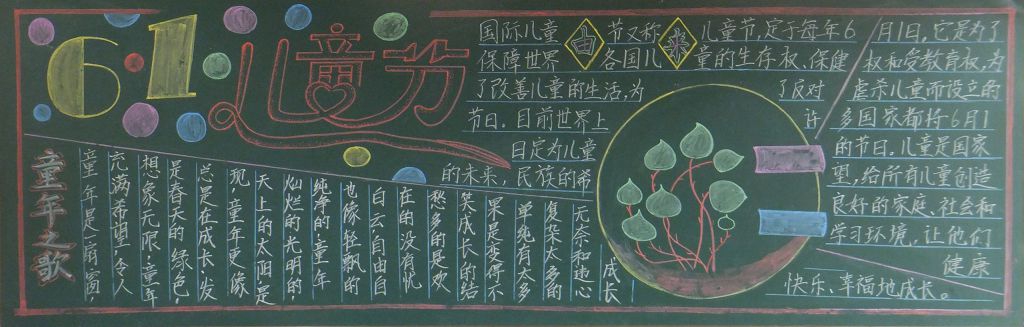 61儿童节
国际儿童节又称儿童节,定于每年6月1日,它是为了
由来
保障世界各国儿童的生存权、保健权和受教育权,为
了改善儿童的生活,为了反对虐杀儿童而设立的
节日。目前世界上许多国家都将6月1
日定为儿童的节日。儿童是国家
的未来,民族的希望,给所有儿童创造
良好的家庭、社会和
学习环境,让他们
健康
快乐、幸福地成长。
童年之歌
童年是一扇窗,
充满希望,令人
想象无限,童年
是春天的绿色,
总是在成长、发
现,童年更像
天上的太阳,是
灿烂的光明的,
纯净的童年
也像轻飘的
白云自由自
在的没有忧
愁多的是欢
笑成长的结
果是变得不
单纯有太多
复杂太多的
无奈和违心
成长!